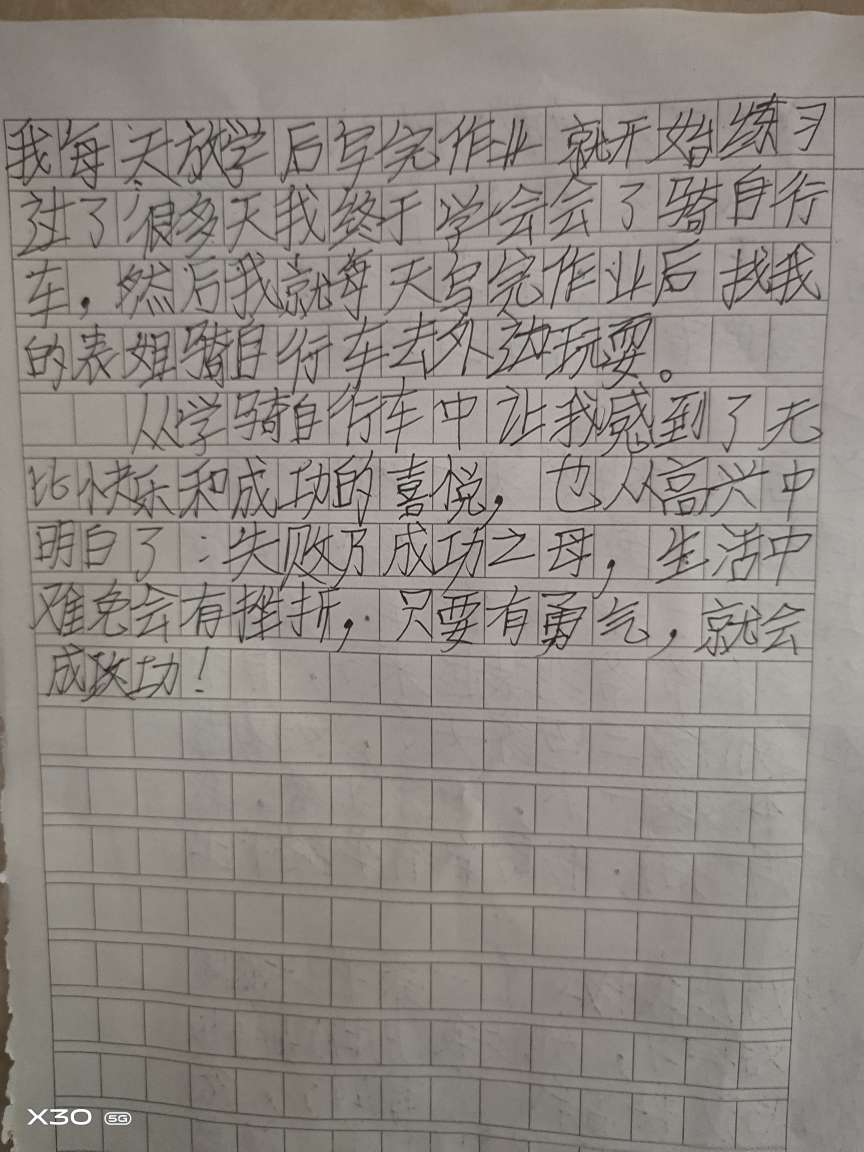 我每天放学后写完作业就开始练习
过了很多天我终于学会会了骑自行
车，然后我就每天写完作业后找我
的表姐骑自行车去外边玩耍。
从学骑自行车中让我感到了无
比快乐和成功的喜悦，也从高兴中
明白了：失败乃成功之母，生活中
难免会有挫折，只要有勇气，就会
成功！
X30 5G